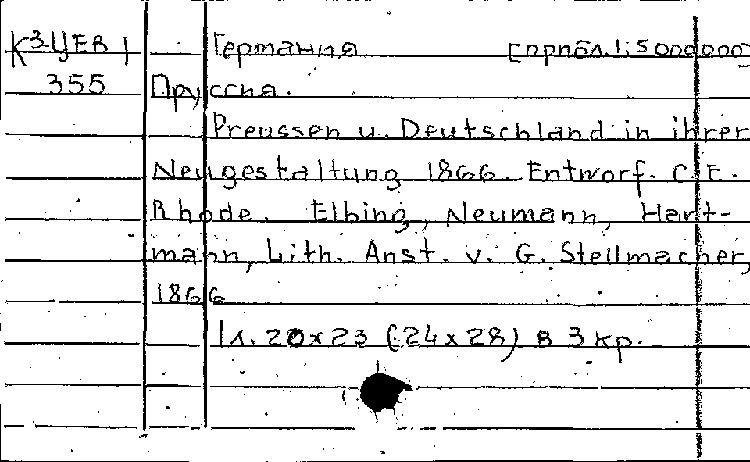 К3-ЦЕВ 1 Германия [прибл. 1:5000000]
355 Пруссия.
Preussen u. Deutschland in ihrer
Neugestaltung 1866. Entworf. C. E.
Rhode. Elbing, Neumann, Hart-
mann, Lith. Anst. v. G. Stellmacher,
1866
1л. 20х23 (24х28) в 3 кр.